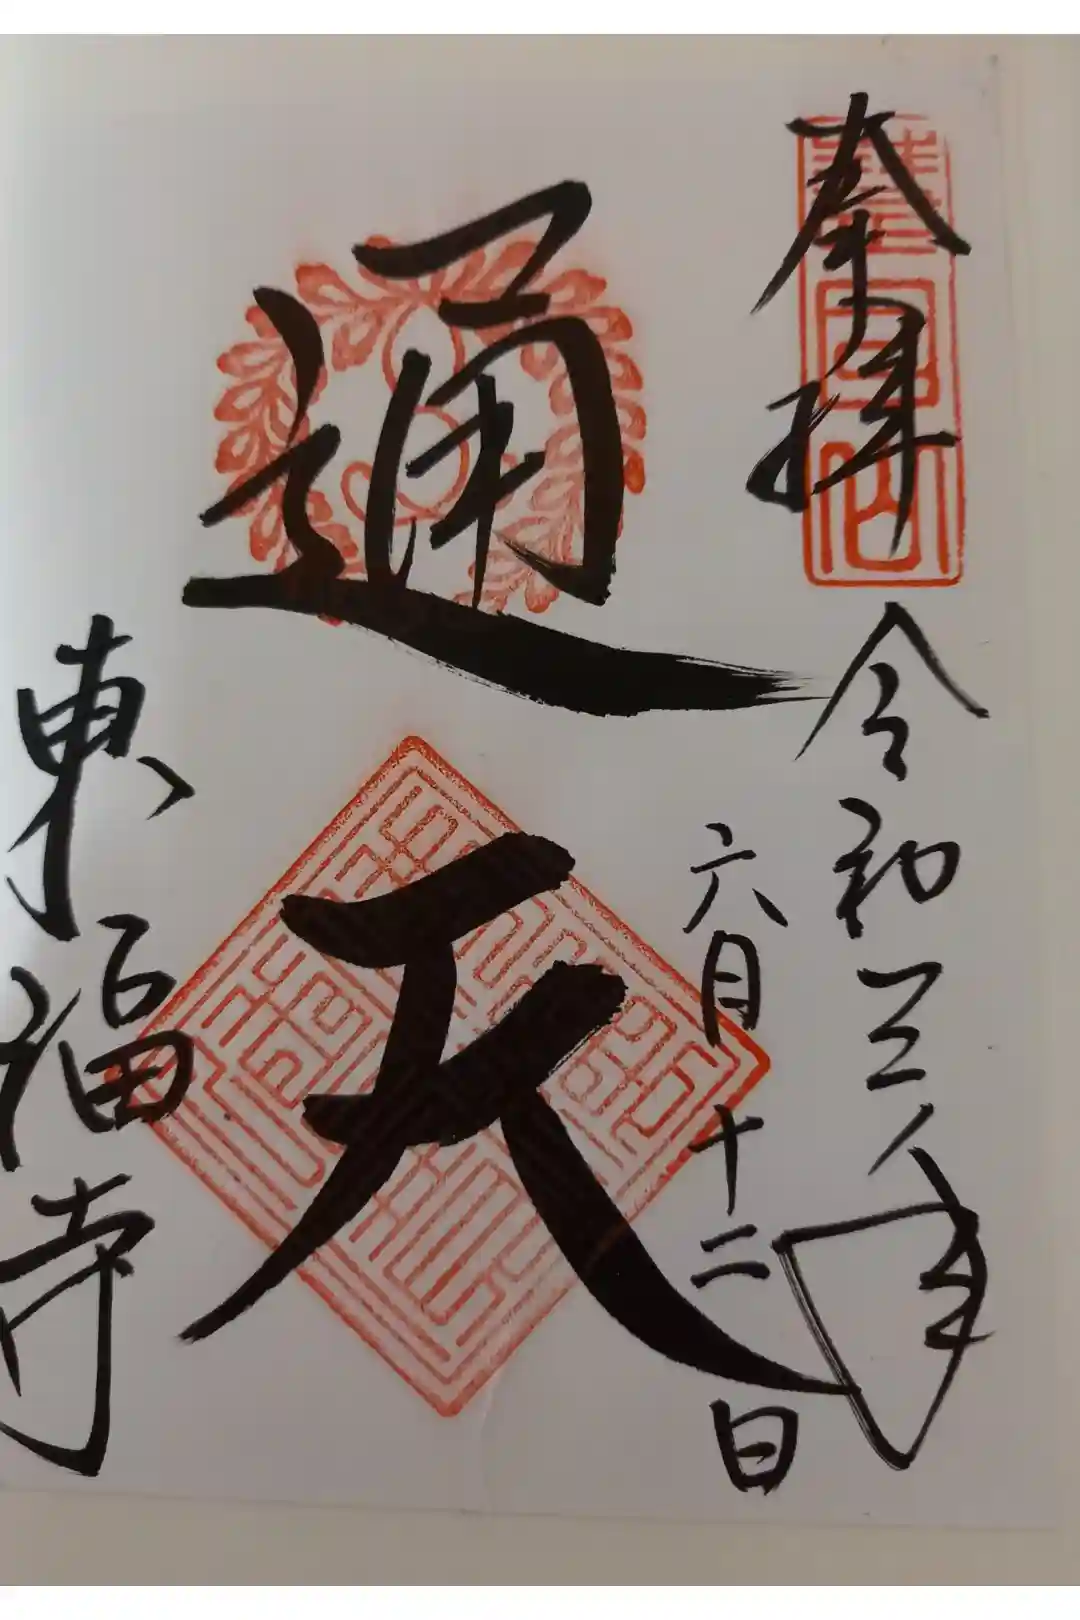 奉拝
慧日山
令和三年
六月十二日
通天
東福寺